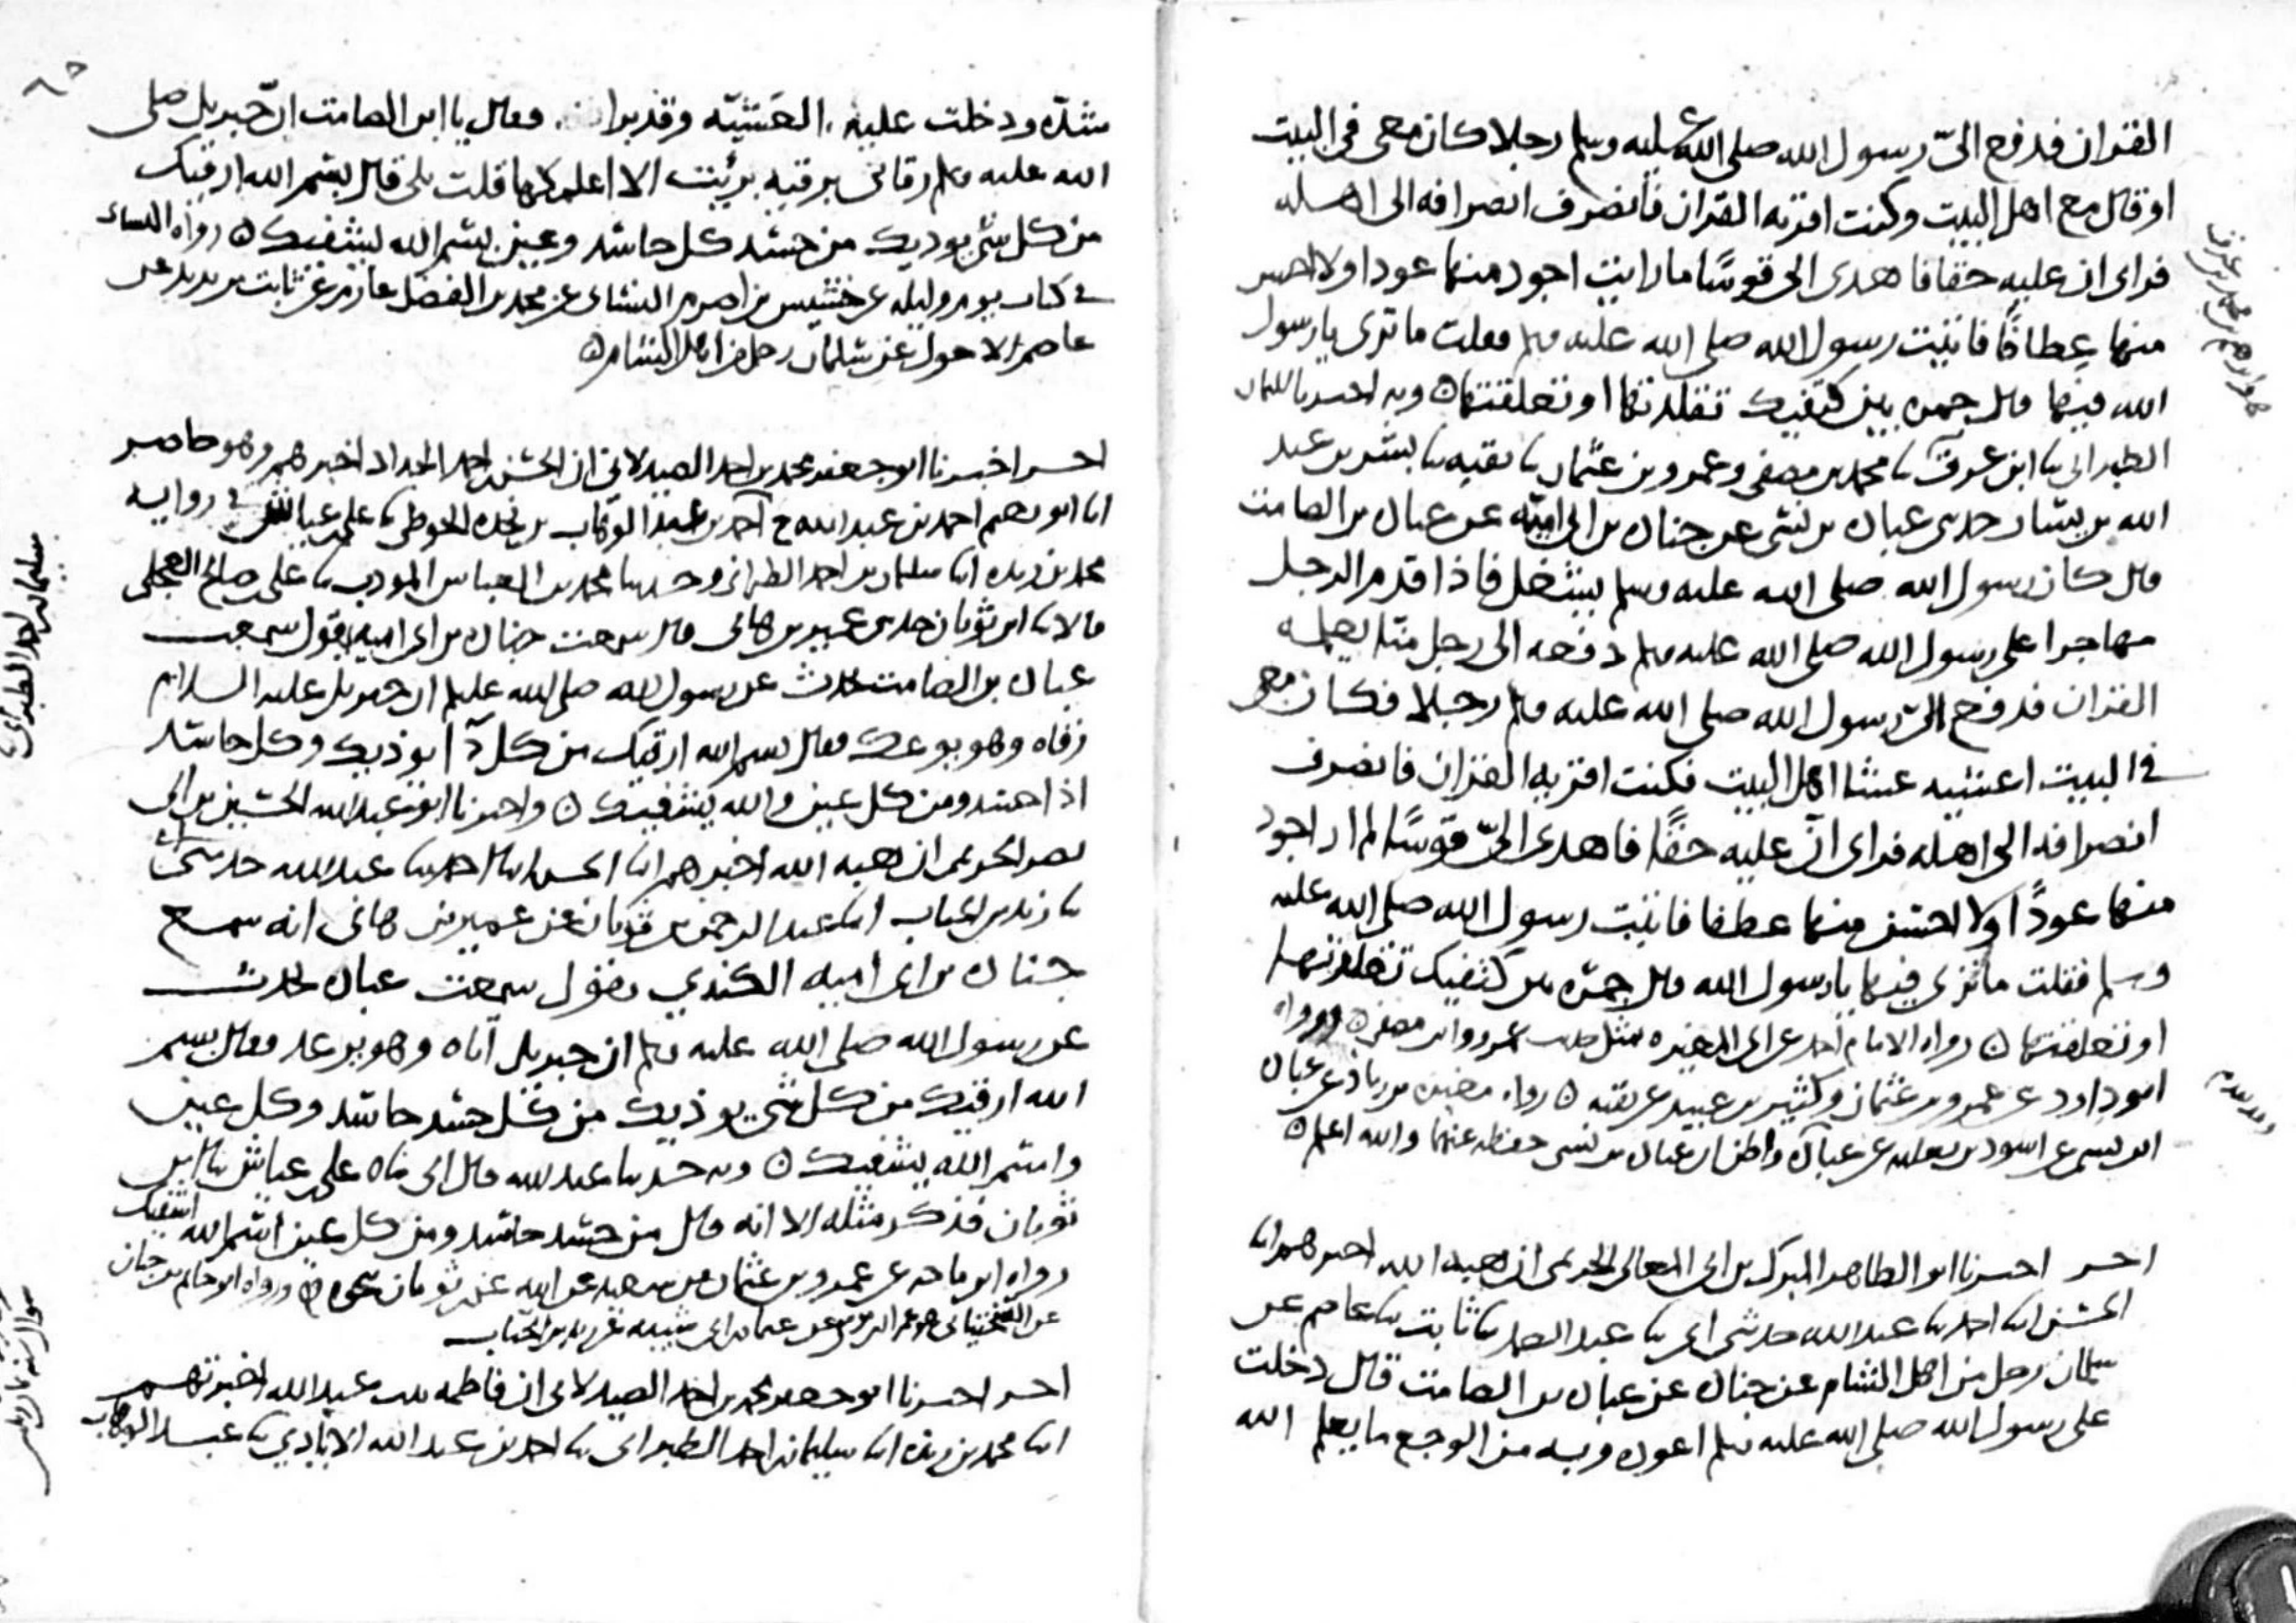 القران فدفع اليّ رسول الله صلى الله عليه وسلم رجلا كان معي في البيت
او قال مع اهل البيت وكنت اقريه القران فانصرف انصرافه الى اهله
فراى ان عليه حقا فاهدى الي قوسًا ما رايت اجود منها عودا ولا احسن
منها عِطافًا فاتيت رسول الله صلى الله عليه وسلم فقلت ما ترى يا رسول
الله فيها قال جمره بين كتفيك تقلدتها او تعلقتها ٥ وبه اخبرنا سليمان
الطبراني ثنا ابن عرق ثنا محمد بن مصفى وعمرو بن عثمان ثنا بقيه ثنا بشر بن عبد
الله بن يسار حدثني عباده بن نسى عن جناده بن ابي اميّه عن عباده بن الصامت
قال كان رسول الله صلى الله عليه وسلم يشغل فاذا قدم الرجل
مهاجرا على رسول الله صلى الله عليه وسلم دفعه الى رجل منا يعلمه
القران فدفع اليّ رسول الله صلى الله عليه وسلم رجلا فكان معي
في البيت اعشيه عشا اهل البيت فكنت اقريه القران فانصرف
انصرافه الى اهله فراى انّ عليه حقًا فاهدى اليّ قوسًا لم ار اجود
منها عودًا ولا احسن منها عطفا فاتيت رسول الله صلى الله عليه
وسلم فقلت ما ترى فيها يا رسول الله قال جمره بين كتفيك تقلدتها
او تعلقتها ٥ رواه الامام احمد عن ابي المغيره مثل حديث عمرو وابن مصفى ٥ ورواه
ابو داود عن عمرو بن عثمان وكثير بن عبيد عن بقيه ٥ رواه مغيره بن زياد عن عباده
ابن نسي عن اسود بن ثعلبه عن عباده واظن ان عباده بن نسي حفظه عنهما والله اعلم ٥
اخبرنا ابو الطاهر المبرك بن ابي المعالي الحريمي ان هبه الله اخبرهم ابنا
الحسن ابنا احمد ثنا عبد الله حدثني ابي ثنا عبد الصمد ثنا ثابت ثنا عاصم عن
سلمان رجل من اهل الشام عن جناده عن عباده بن الصامت قال دخلت
على رسول الله صلى الله عليه وسلم اعوده وبه من الوجع ما يعلم الله
شدّه ودخلت عليه العَشيّه وقد برا فقال يا ابن الصامت انّ جبريل صلى
الله عليه وسلم رقاني برقيه برئت الا اعلمكها قلت بلى قال بسم الله ارقيك
من كل شي يوذيك من حسد كل حاسد وعين بسم الله يشفيك ٥ رواه النسائي
في كتاب يوم وليله عن خشيش بن اصرم النسائي عن محمد بن الفضل عارم عن ثابت بن يزيد عن
عاصم الاحول عن سلمان رجل من اهل الشام ٥
اخبرنا ابو جعفر محمد بن احمد الصيدلاني ان الحسن بن احمد الحداد اخبرهم وهو حاضر
ابنا ابو نعيم احمد بن عبد الله ح احمد بن عبد الوهاب بن نجده الحوطي ثنا علي بن عياش في روايه
محمد بن ريذه ابنا سليمان بن احمد الطبراني وحدثنا محمد بن العباس المودب ثنا علي بن صالح العجلي
قالا ثنا ابن ثوبان حدثني عمير بن هاني قال سمعت جناده بن ابي اميه يقول سمعت
عباده بن الصامت يحدث عن رسول الله صلى الله عليه وسلم ان جبريل عليه السلام
رقاه وهو يوعك فقال بسم الله ارقيك من كل دآ يوذيك وكل حاسد
اذا حسد ومن كل عين والله يشفيك ٥ واخبرنا ابو عبد الله الحسين بن ابي
نصر الحريمي ان هبه الله اخبرهم ابنا الحسن ابنا احمد ثنا عبد الله حدثني ابي
ثنا زيد بن الحباب ابنا عبد الرحمن بن ثوبان عن عمير بن هاني انه سمع
جناده بن ابي اميه الكندي يقول سمعت عباده يحدث
عن رسول الله صلى الله عليه وسلم ان جبريل اتاه وهو يرعد فقال بسم
الله ارقيك من كل شي يوذيك من كل حسد حاسد وكل عين
واسم الله يشفيك ٥ وبه حدثنا عبد الله قال ابي ثناه علي بن عياش ثنا ابن
ثوبان فذكر مثله الا انه قال من حسد حاسد ومن كل عين اسم الله يشفيك
رواه ابن ماجه عن عمرو بن عثمان بن سعيد عن ابيه عن ابن ثوبان نحوه ٥ ورواه ابو حاتم بن حبان
عن عثمان بن ابي شيبه عن زيد بن الحباب
اخبرنا ابو جعفر محمد بن احمد الصيدلاني ان فاطمه بنت عبد الله اخبرتهم
ابنا محمد بن ريذه ابنا سليمان بن احمد الطبراني ثنا احمد بن عبد الله الايادي ثنا عبد الوهاب
سليمان بن احمد الطبراني